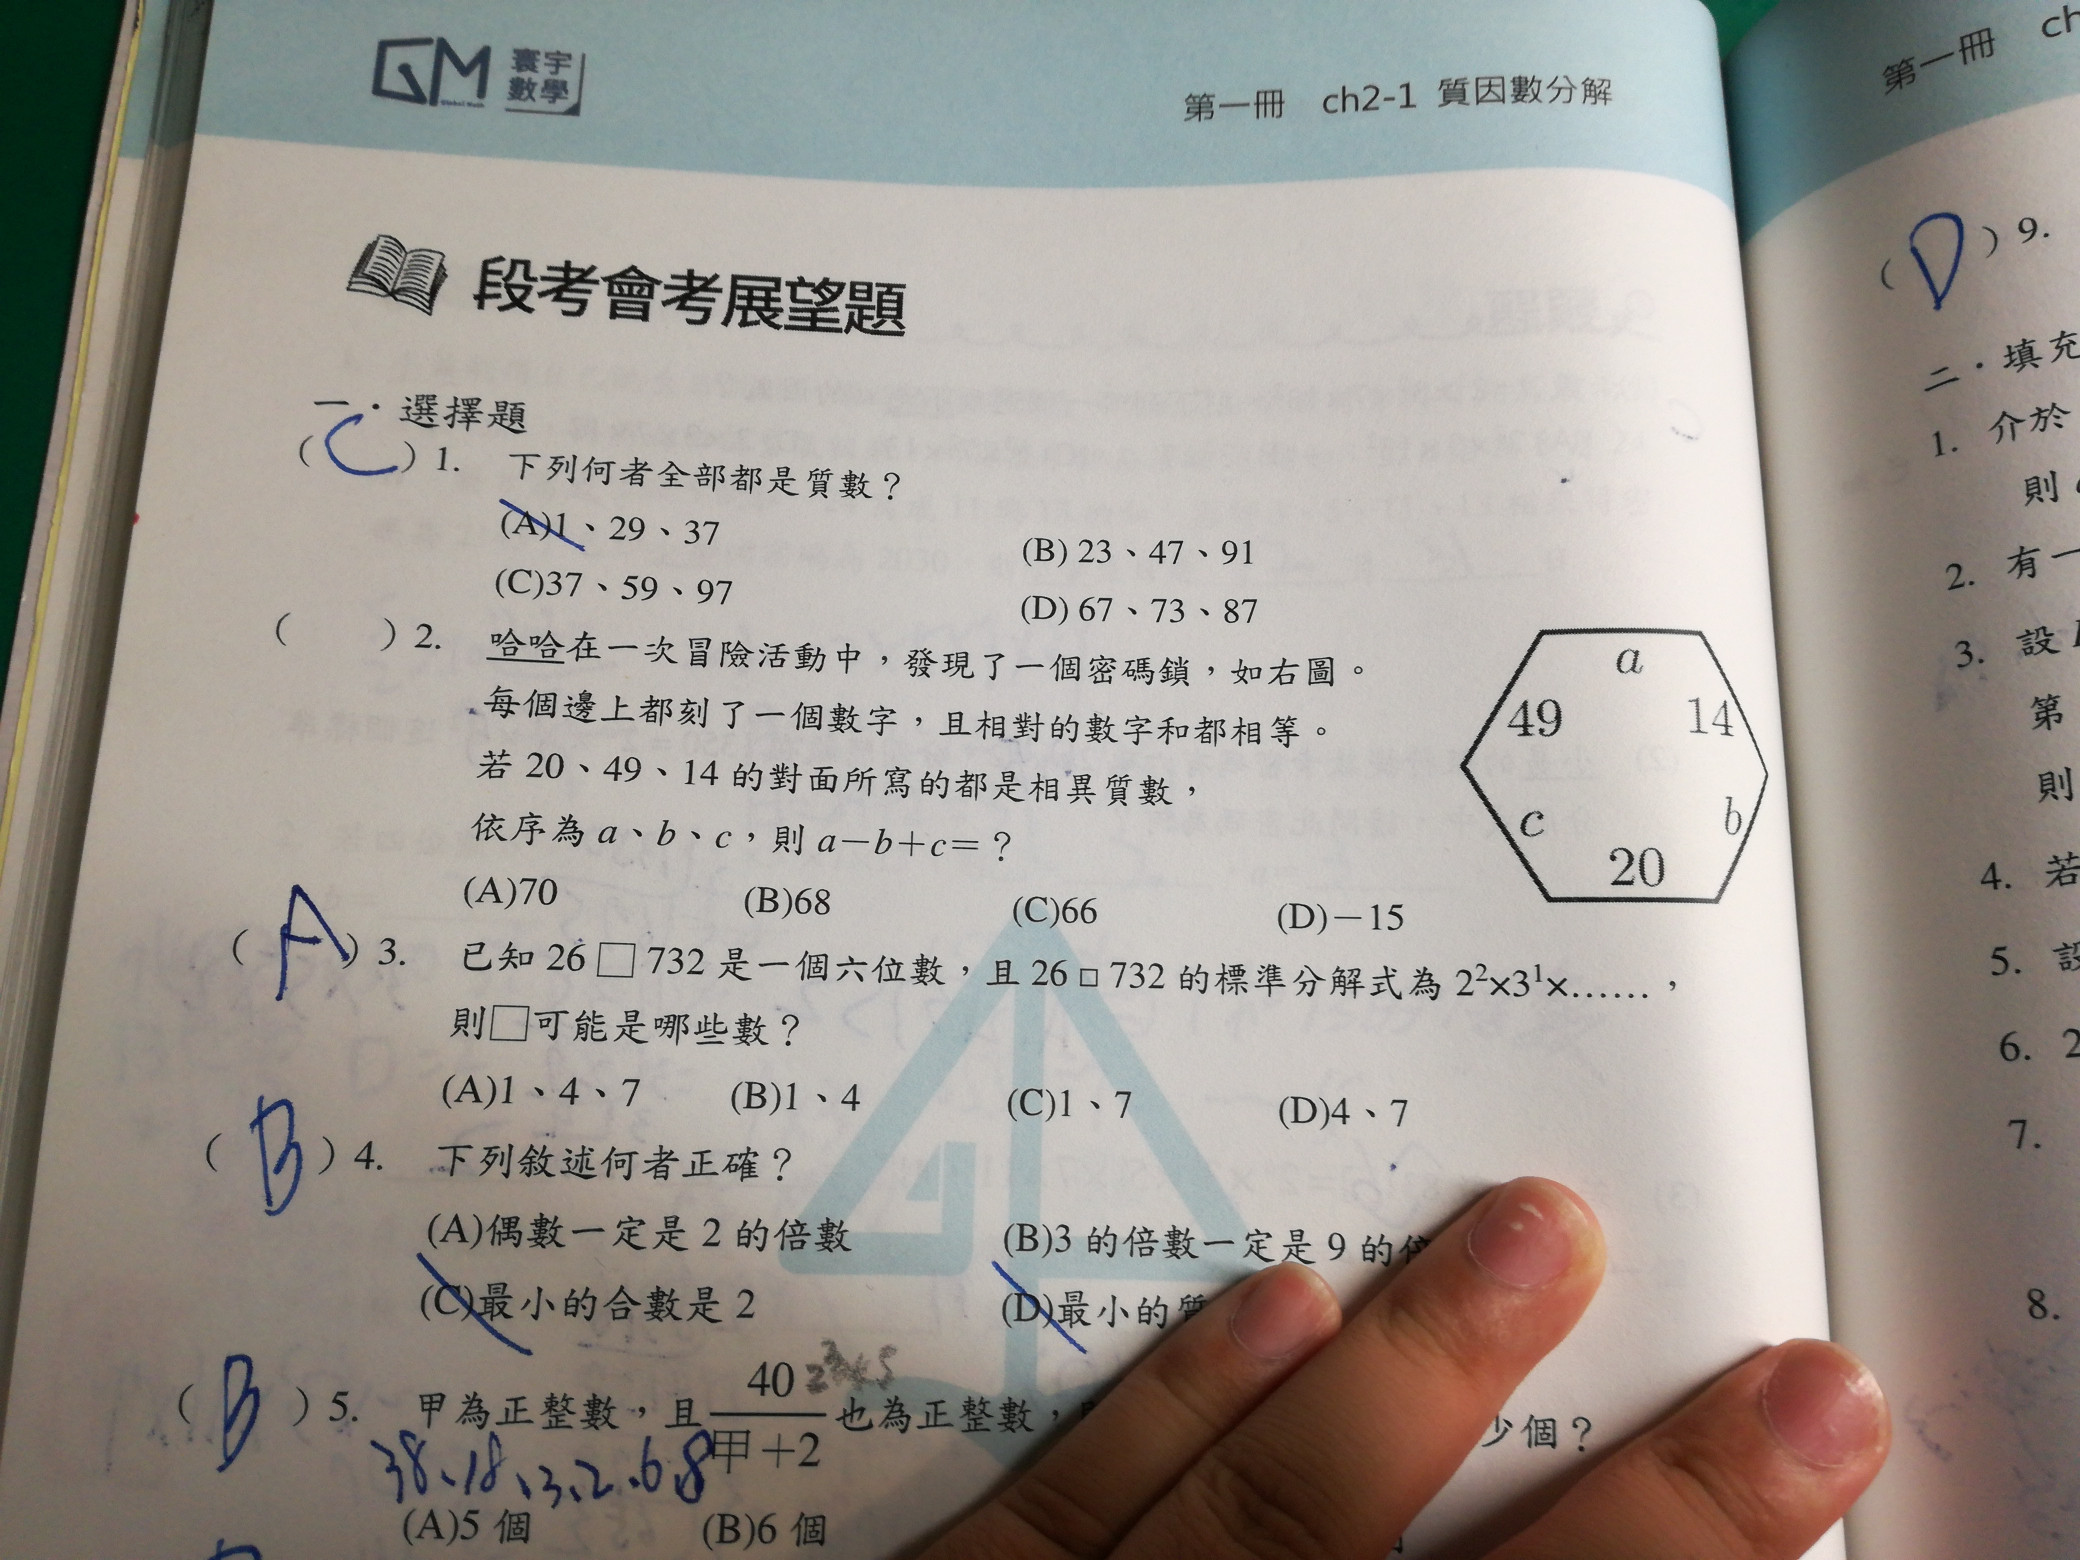 GM 寰宇
數學
第一冊 ch2-1 質因數分解
段考會考展望題
一・選擇題
(C)1. 下列何者全部都是質數？
(A)1、29、37
(B) 23、47、91
(C)37、59、97
(D) 67、73、87
( )2. 哈哈在一次冒險活動中，發現了一個密碼鎖，如右圖。
每個邊上都刻了一個數字，且相對的數字和都相等。
若 20、49、14 的對面所寫的都是相異質數，
依序為 a、b、c，則 a－b＋c＝？
(A)70 (B)68 (C)66 (D)－15
a
49 14
c b
20
(A)3. 已知 26□732 是一個六位數，且 26□732 的標準分解式為 2²×3¹×……，
則□可能是哪些數？
(A)1、4、7 (B)1、4 (C)1、7 (D)4、7
(B)4. 下列敘述何者正確？
(A)偶數一定是 2 的倍數
(B)3 的倍數一定是 9 的
(C)最小的合數是 2
(D)最小的質
(B)5. 甲為正整數，且 40/甲＋2 也為正整數， 少個？
38、18、3、2、6、8
(A)5 個 (B)6 個
第一冊 ch
(D)9.
二・填充
1. 介於
則
2. 有一
3. 設
第
則
4. 若
5. 設
6. 2
7.
8.